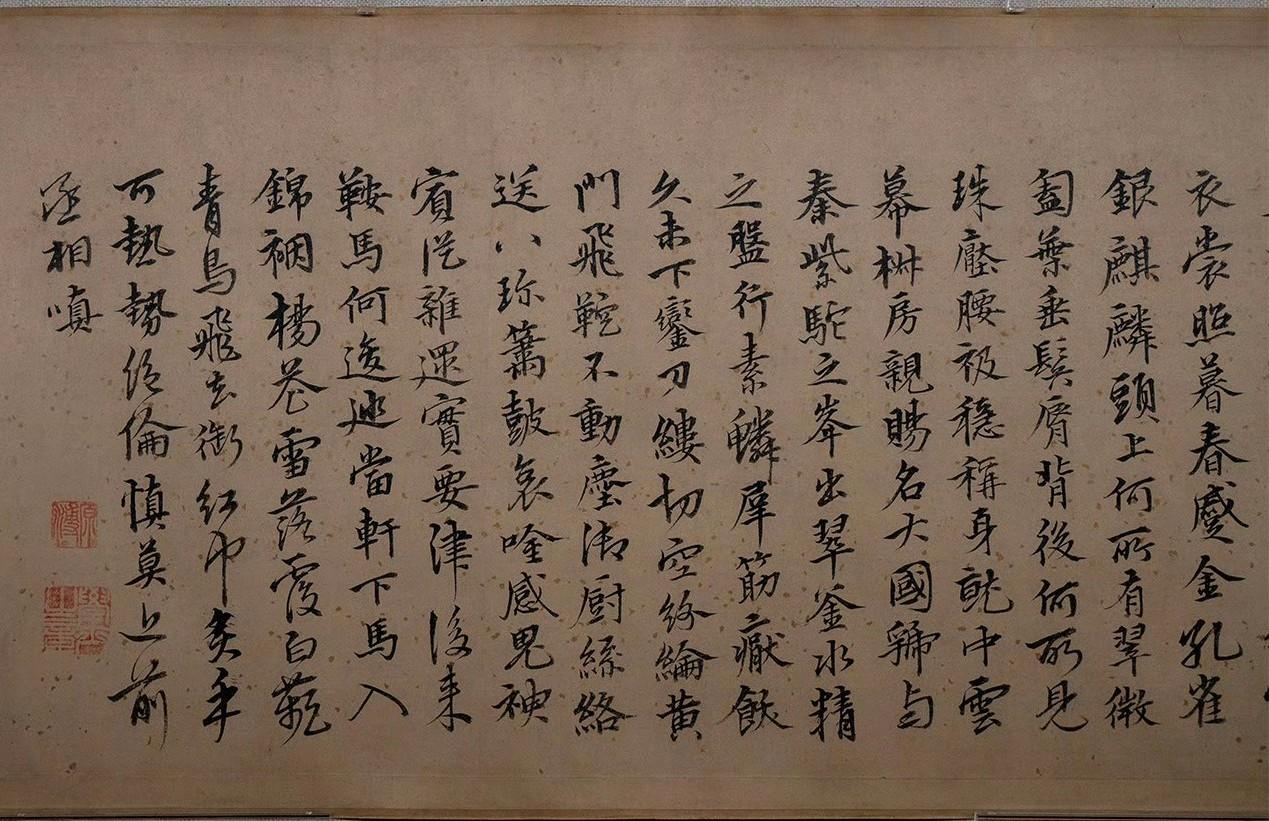 衣裳照暮春蹙金孔雀
銀麒麟頭上何所有翠微
㔩葉垂鬢脣背後何所見
珠壓腰衱穩稱身就中雲
幕椒房親賜名大國虢与
秦紫駝之峯出翠釜水精
之盤行素鱗犀筯厭飫
久未下鑾刀縷切空紛綸黄
門飛鞚不動塵御厨絲絡
送八珎簫鼓哀唫感鬼神
賓從雜遝實要津後来
鞍馬何逡廵當軒下馬入
錦裀楊花雪落覆白蘋
青鳥飛去銜紅巾炙手
可熱勢絕倫慎莫近前
丞相嗔